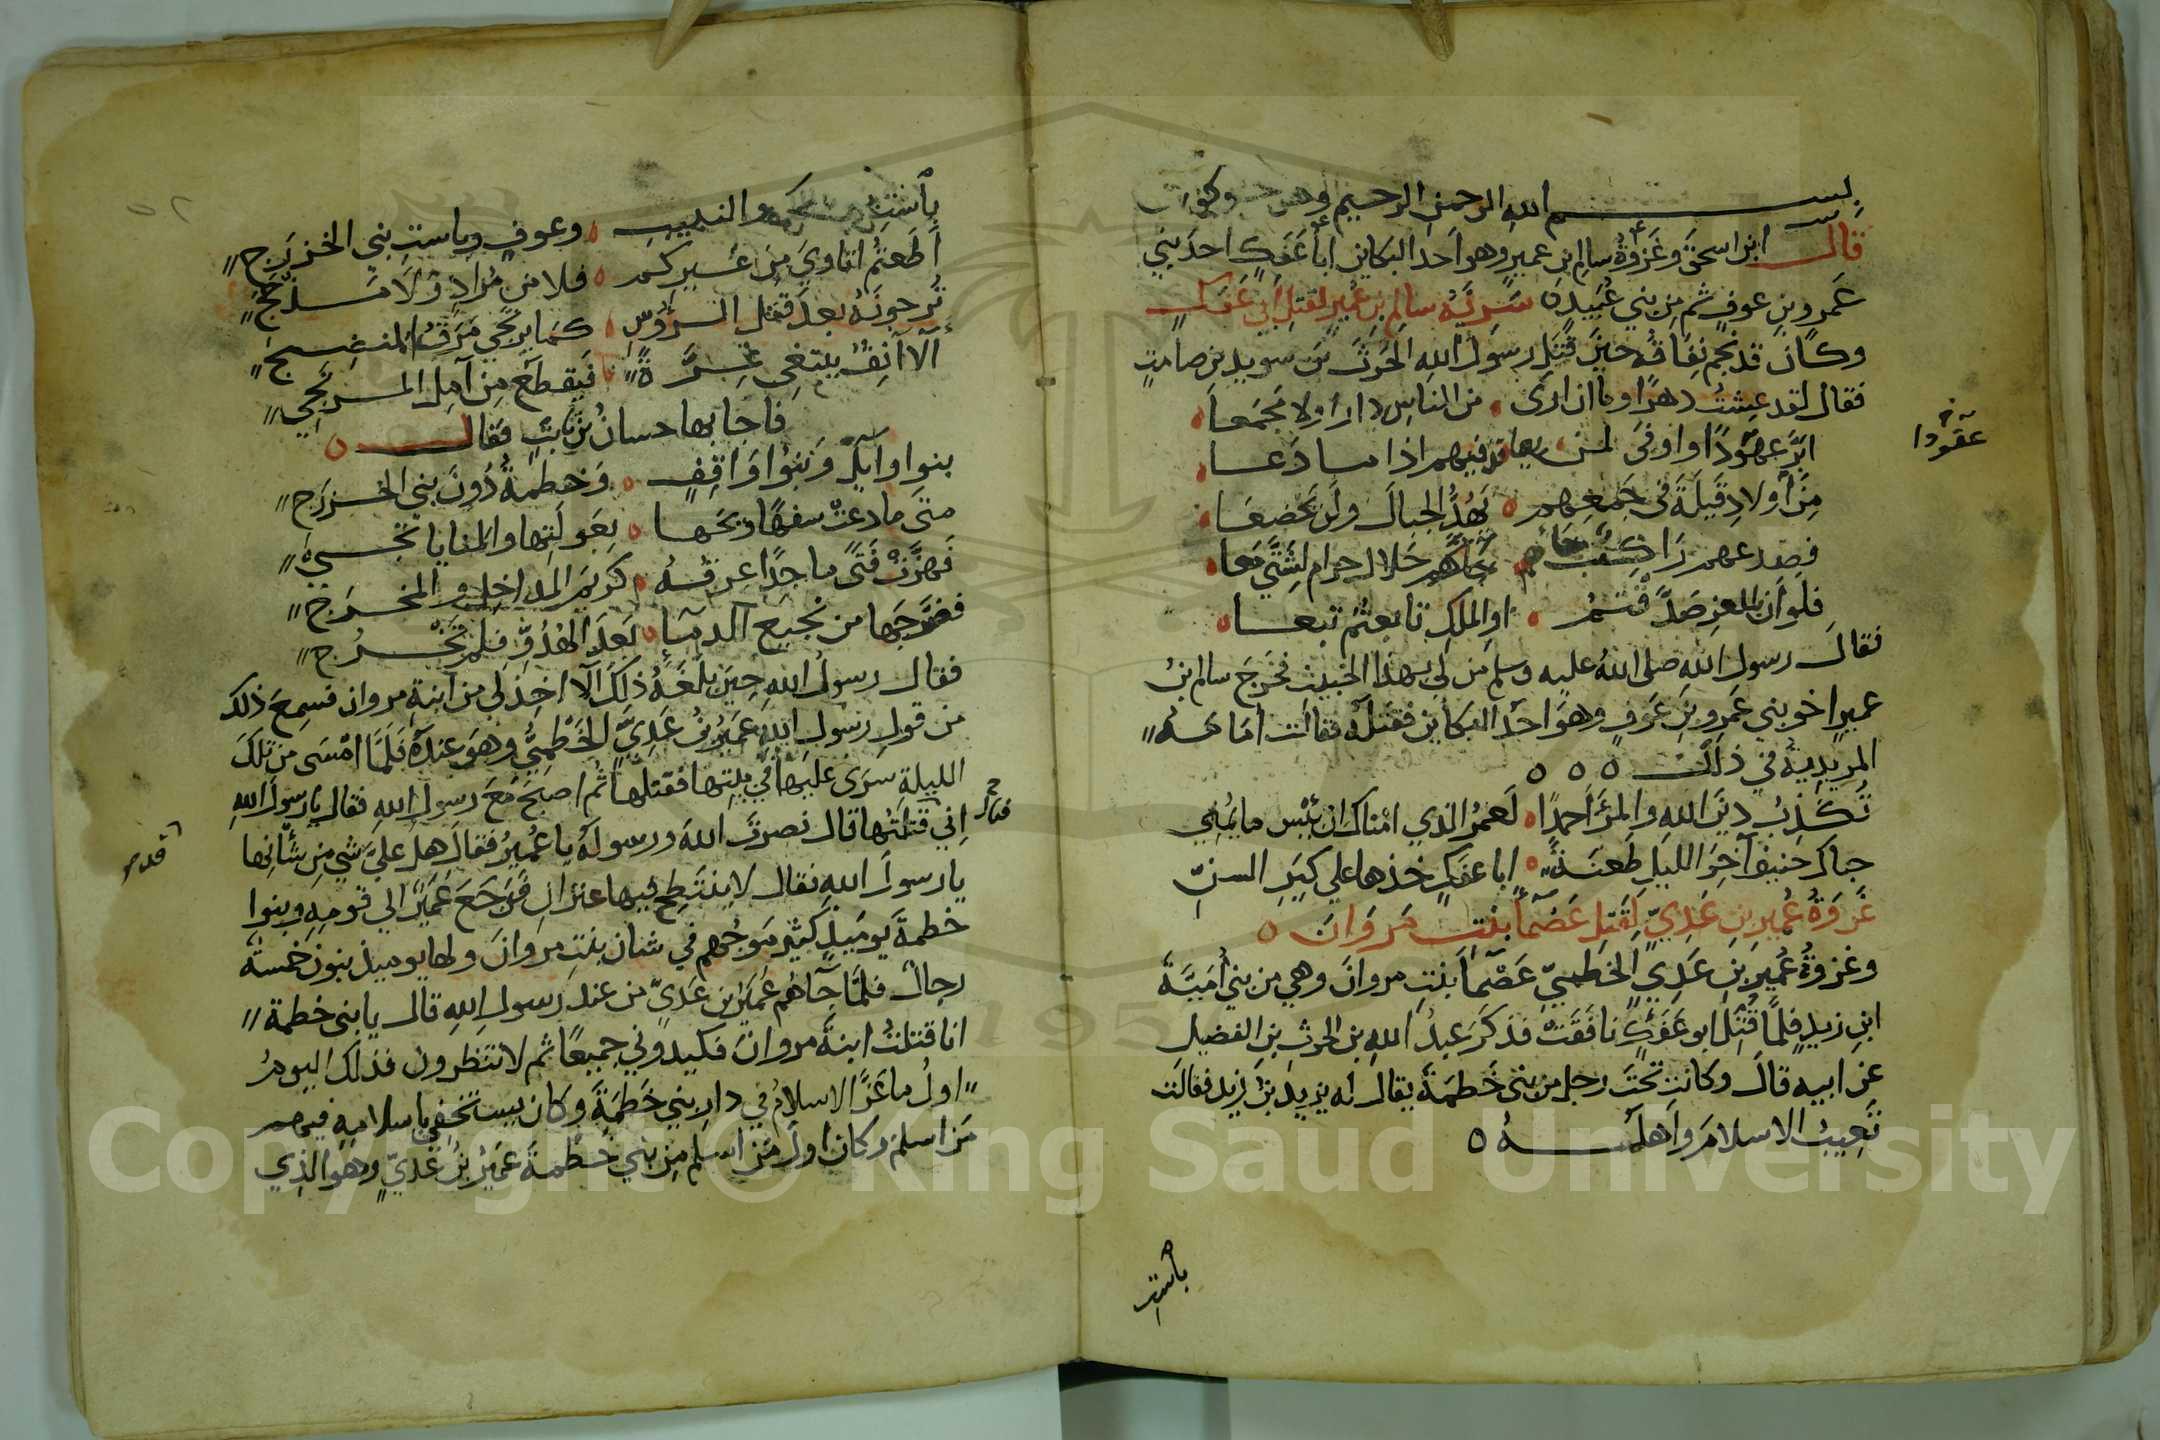 بسم الله الرحمن الرحيم وهو
قال ابن اسحق وغزوة سالم ابن عمير وهو احد البكاين ابا عفك احد بني
عمرو بن عوف ثم من بني عبيدة سرية سالم بن عمير لقتل ابي عفك
وكان قد نجم نفاقه حين قتل رسول الله الحرث بن سويد بن صامت
فقال لقد عشت دهرا وما ان ارى من الناس دارا ولا مجمعا
ابر عهودا واوفى لمن يعاقد فيهم اذا ما دعا
عقودا
من اولاد قيلة في جمعهم يهد الجبال ولن يخضعا
فصدعهم راكب جاهم حلال حرام لشتى معا
فلو ان بالعز صدقتم او الملك تابعتم تبعا
فقال رسول الله صلى الله عليه وسلم من لي بهذا الخبيث فخرج سالم ابن
عمير اخو بني عمرو بن عوف وهو احد البكاين فقتله فقالت امامة
المريدية في ذلك
تكذب دين الله والمرء احمدا لعمر الذي امناك ان بئس ما يمني
حباك حنيف آخر الليل طعنة ابا عفك خذها على كبر السن
غزوة عمير بن عدي لقتل عصما بنت مروان
وغزوة عمير بن عدي الخطمي عصما بنت مروان وهي من بني امية
ابن زيد فلما قتل ابو عفك نافقت فذكر عبد الله بن الحرث بن الفضيل
عن ابيه قال وكانت تحت رجل من بني خطمة يقال له يزيد بن زيد فقالت
تعيب الاسلام واهله
باست
باست والنبيت وعوف وباست بني الخزرج
اطعتم اتاوي من غيركم فلا من مراد ولا مذحج
ترجونه بعد قتل الرؤس كما يرتجي مرق المنضج
الا آنف يبتغي غرة فيقطع من آمل المرتجي
فاجابها حسان بن ثابت فقال
بنوا وآيل وبنوا واقف وخطمة دون بني الخزرج
متى ما دعت سفها ويحها بعولتها والمنايا تجي
فهزت فتى ماجدا عرقه كريم المداخل والمخرج
فضرجها من نجيع الدما بعد الهدو فلم تخرج
فقال رسول الله حين بلغه ذلك الا اخذ لي من ابنة مروان فسمع ذلك
من قول رسول الله عمير بن عدي الخطمي وهو عنده فلما امسى من تلك
الليلة سرى عليها في بيتها فقتلها ثم اصبح مع رسول الله فقال يا رسول الله
اني قتلتها قال نصرت الله ورسوله يا عمير فقال هل علي شي من شانها
يا رسول الله فقال لا ينتطح فيها عنزان فرجع عمير الى قومه وبنوا
خطمة يوميذ كثير موجهم في شان بنت مروان ولها يوميذ بنون خمسة
رجال فلما جآهم عمير بن عدي من عند رسول الله قال يا بني خطمة
انا قتلت ابنة مروان فكيدوني جميعا ثم لا تنظرون فذلك اليوم
اول ما عز الاسلام في دار بني خطمة وكان يستخفي باسلامه فيهم
من اسلم وكان اول من اسلم من بني خطمة عمير بن عدي وهو الذي
Copyright © King Saud University
1957